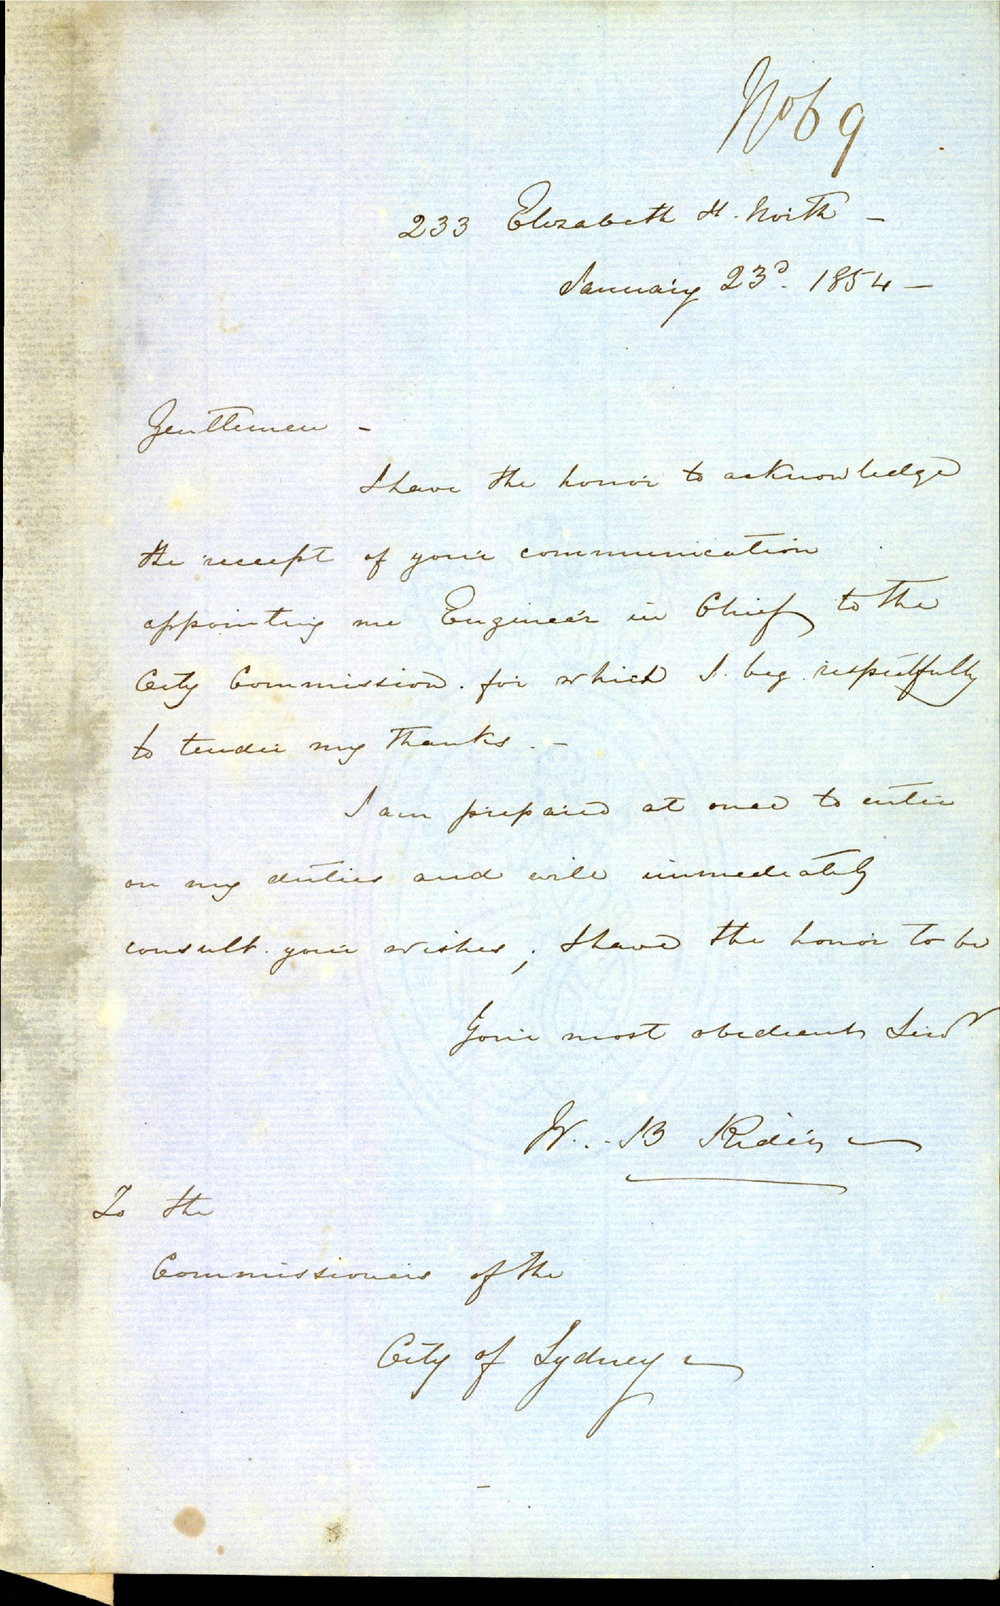 No 69
233 Elizabeth St. North -
January 23d. 1854 -
Gentlemen -
I have the honor to acknowledge
the receipt of your communication
appointing me Engineer in Chief to the
City Commission. for which I. beg. respectfully
to tender my thanks. -
I am prepared at once to enter
on my duties and will immediately
consult. your wishes; I have the honor to be
Your most obedient Servt
W. B Rider
To the
Commissioners of the
City of Sydney